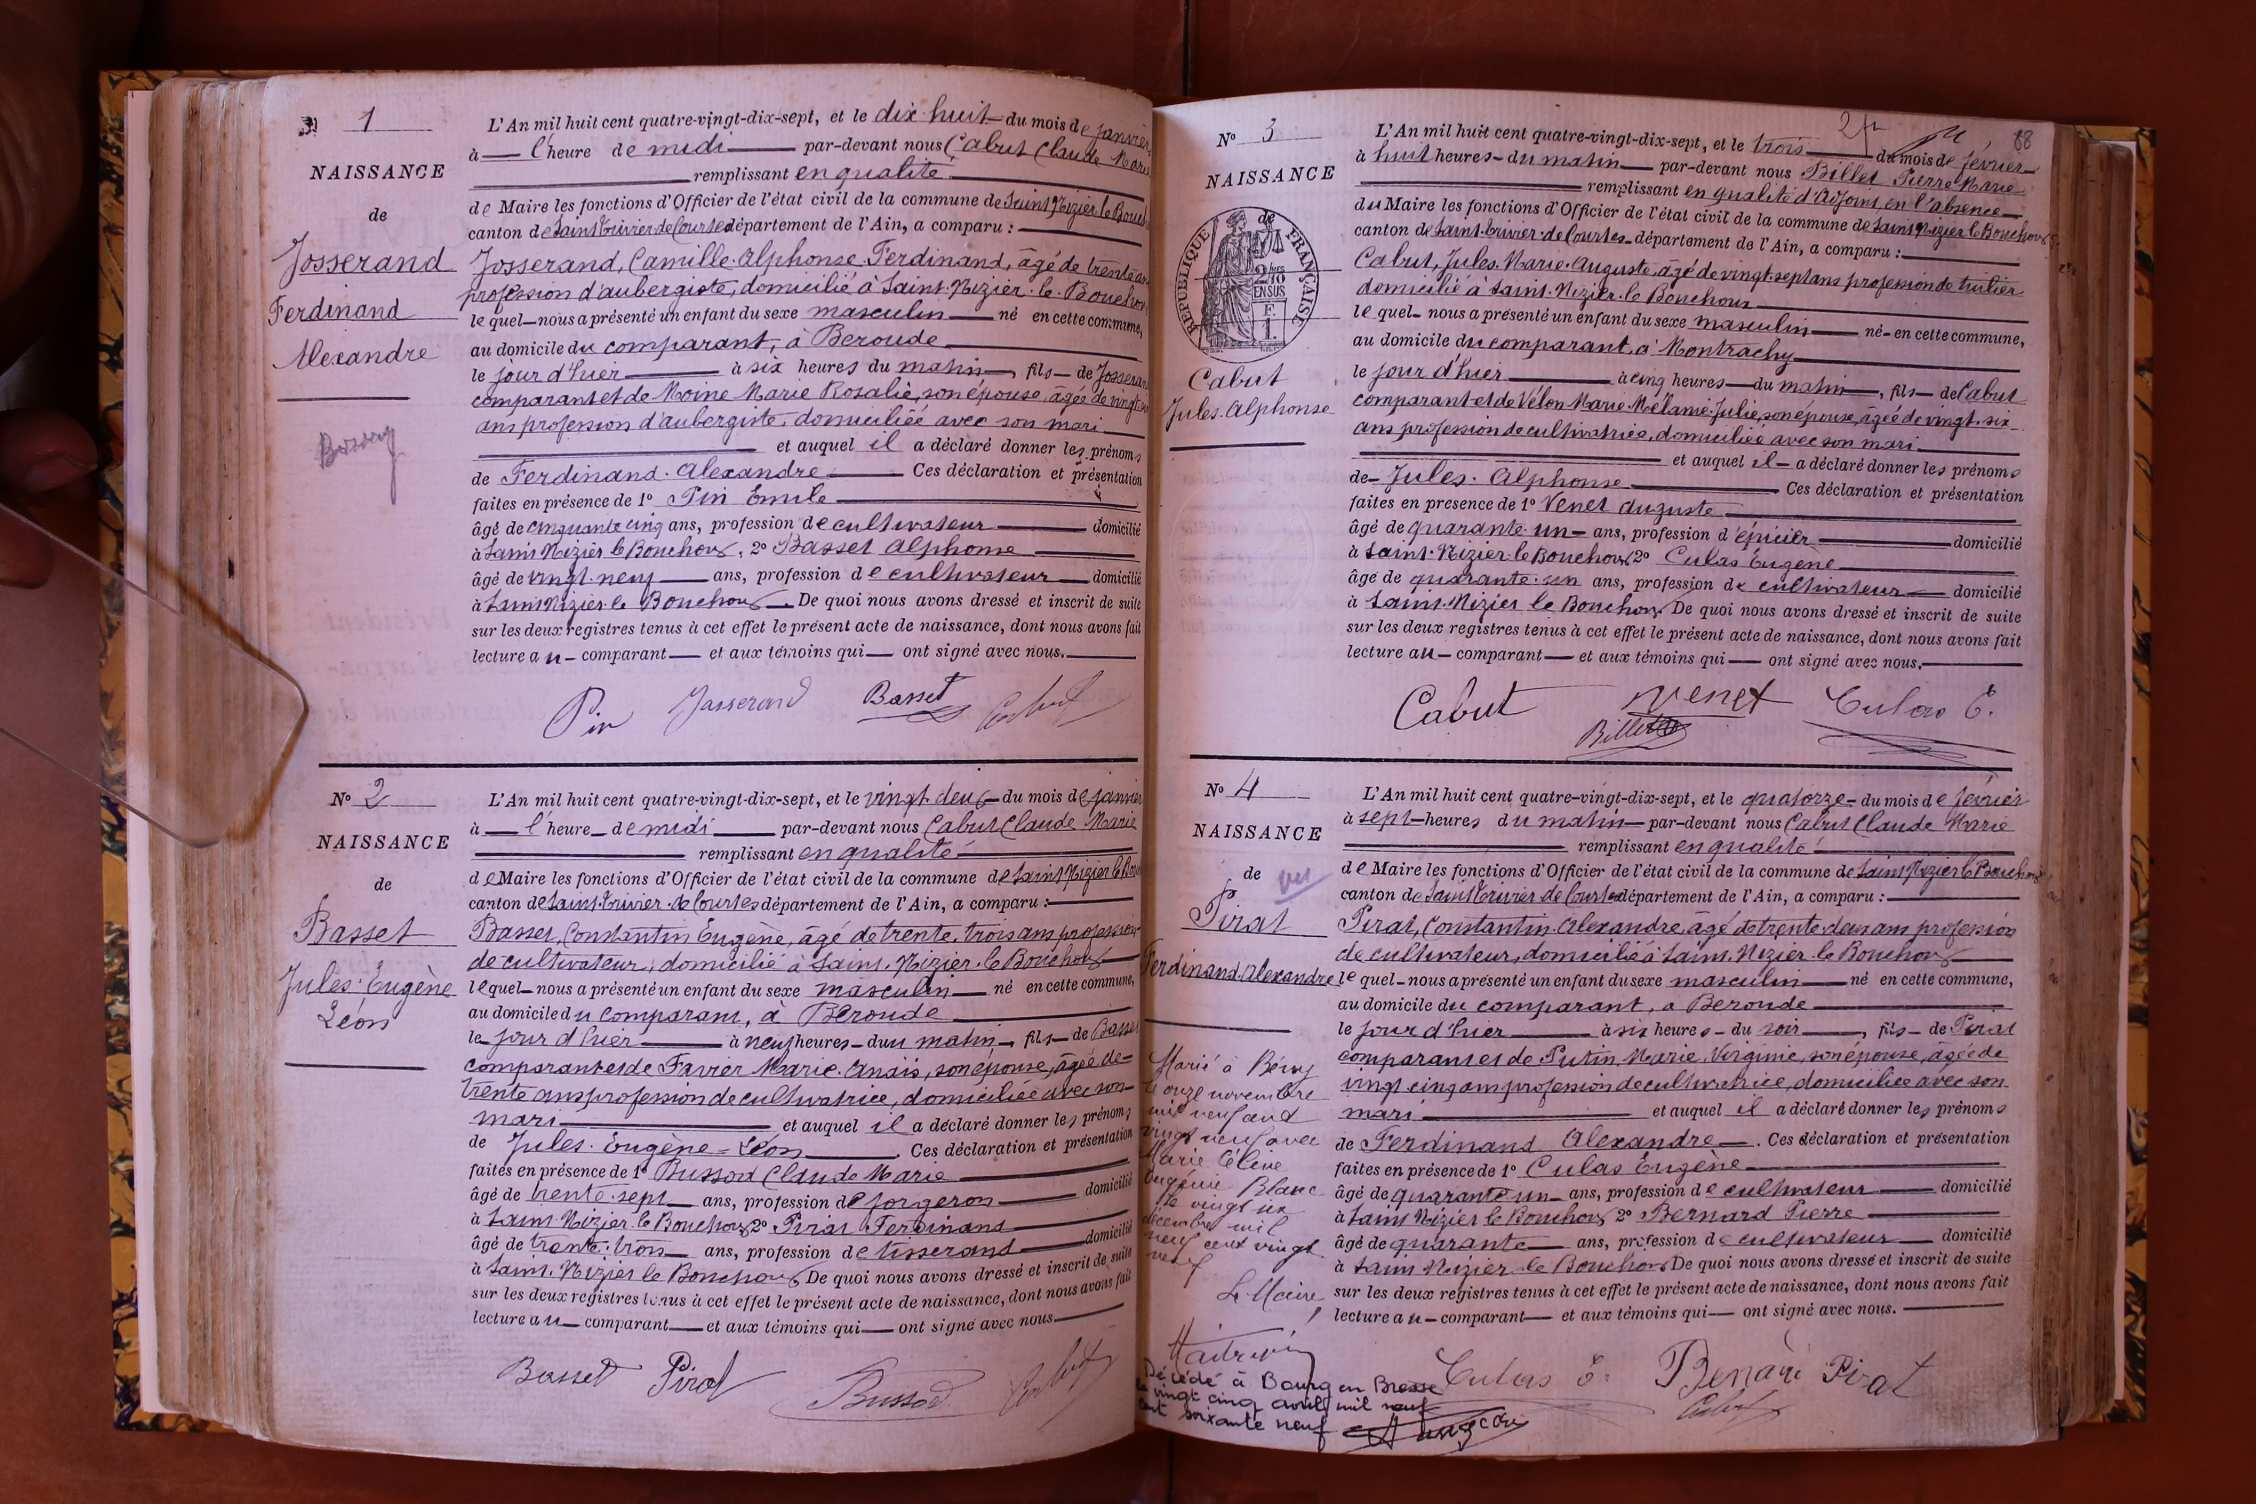 N° 1
NAISSANCE
de
Josserand
Ferdinand
Alexandre
L'An mil huit cent quatre-vingt-dix-sept, et le dix-huit du mois de janvier
à l'heure de midi par-devant nous Cabut Claude Marie
remplissant en qualité
de Maire les fonctions d'Officier de l'état civil de la commune de Saint Nizier le Bouch
canton de Saint Trivier de Courtes département de l'Ain, a comparu :
Josserand, Camille Alphonse Ferdinand, âgé de trente ans
profession d'aubergiste, domicilié à Saint-Nizier-le-Bouchoux
lequel nous a présenté un enfant du sexe masculin né en cette commune,
au domicile du comparant, à Beroude
le jour d'hier à six heures du matin, fils de Josserand
comparant et de Moine Marie Rosalie, son épouse, âgée de vingt
ans profession d'aubergiste, domiciliée avec son mari
et auquel il a déclaré donner les prénoms
de Ferdinand Alexandre Ces déclaration et présentation
faites en présence de 1° Pin Emile
âgé de cinquante cinq ans, profession de cultivateur domicilié
à Saint Nizier le Bouchoux, 2° Basset Alphonse
âgé de vingt-neuf ans, profession de cultivateur domicilié
à Saint Nizier le Bouchoux. De quoi nous avons dressé et inscrit de suite
sur les deux registres tenus à cet effet le présent acte de naissance, dont nous avons fait
lecture au comparant et aux témoins qui ont signé avec nous.
Pin Josserand Basset Cabut
N° 2
NAISSANCE
de
Basset
Jules Eugène
Léon
L'An mil huit cent quatre-vingt-dix-sept, et le vingt deux du mois de janvier
à l'heure de midi par-devant nous Cabut Claude Marie
remplissant en qualité
de Maire les fonctions d'Officier de l'état civil de la commune de Saint Nizier le Bou
canton de Saint-Trivier de Courtes département de l'Ain, a comparu :
Basset, Constantin Eugène, âgé de trente-trois ans profession
de cultivateur, domicilié à Saint-Nizier-le Bouchoux
lequel nous a présenté un enfant du sexe masculin né en cette commune,
au domicile du comparant, à Beroude
le jour d'hier à neuf heures du matin, fils de Basset
comparant et de Favier Marie Anaïs, son épouse, âgée de
trente ans profession de cultivatrice, domiciliée avec son
mari et auquel il a déclaré donner les prénoms
de Jules Eugène Léon Ces déclaration et présentation
faites en présence de 1° Bussod Claude Marie
âgé de trente-sept ans, profession de forgeron domicilié
à Saint-Nizier le Bouchoux 2° Pirat Ferdinand
âgé de trente-trois ans, profession de tisserand domicilié
à Saint-Nizier le Bouchoux De quoi nous avons dressé et inscrit de suite
sur les deux registres tenus à cet effet le présent acte de naissance, dont nous avons fait
lecture au comparant et aux témoins qui ont signé avec nous
Basset Pirat Bussod Cabut
88
N° 3
NAISSANCE
de
RÉPUBLIQUE FRANÇAISE
2/10
EN SUS
F.
1.
Cabut
Jules Alphonse
L'An mil huit cent quatre-vingt-dix-sept, et le trois du mois de février
à huit heures du matin par-devant nous Billet Pierre Marie
remplissant en qualité d'Adjoint en l'absence
du Maire les fonctions d'Officier de l'état civil de la commune de Saint Nizier le Bouchoux
canton de Saint-Trivier-de Courtes département de l'Ain, a comparu :
Cabut, Jules Marie Auguste, âgé de vingt-sept ans profession de tuilier
domicilié à Saint-Nizier-le Bouchoux
lequel nous a présenté un enfant du sexe masculin né en cette commune,
au domicile du comparant, à Montrachy
le jour d'hier à cinq heures du matin, fils de Cabut
comparant et de Vélon Marie Mélanie Julie, son épouse, âgée de vingt-six
ans profession de cultivatrice, domiciliée avec son mari
et auquel il a déclaré donner les prénoms
de Jules Alphonse Ces déclaration et présentation
faites en présence de 1° Venet Auguste
âgé de quarante-un ans, profession d'épicier domicilié
à Saint-Nizier-le Bouchoux 2° Culas Eugène
âgé de quarante-un ans, profession de cultivateur domicilié
à Saint-Nizier le Bouchoux De quoi nous avons dressé et inscrit de suite
sur les deux registres tenus à cet effet le présent acte de naissance, dont nous avons fait
lecture au comparant et aux témoins qui ont signé avec nous.
Cabut Venet Culas E.
Billet
N° 4
NAISSANCE
de vu
Pirat
Ferdinand Alexandre
L'An mil huit cent quatre-vingt-dix-sept, et le quatorze du mois de février
à sept heures du matin par-devant nous Cabut Claude Marie
remplissant en qualité
de Maire les fonctions d'Officier de l'état civil de la commune de Saint Nizier le Bouchoux
canton de Saint Trivier de Courtes département de l'Ain, a comparu :
Pirat, Constantin Alexandre, âgé de trente deux ans profession
de cultivateur, domicilié à Saint-Nizier-le Bouchoux
lequel nous a présenté un enfant du sexe masculin né en cette commune,
au domicile du comparant, à Beroude
le jour d'hier à six heures du soir, fils de Pirat
comparant et de Putin Marie Virginie, son épouse, âgée de
vingt cinq ans profession de cultivatrice, domiciliée avec son
mari et auquel il a déclaré donner les prénoms
de Ferdinand Alexandre. Ces déclaration et présentation
faites en présence de 1° Culas Eugène
âgé de quarante un ans, profession de cultivateur domicilié
à Saint Nizier le Bouchoux 2° Bernard Pierre
âgé de quarante ans, profession de cultivateur domicilié
à Saint Nizier le Bouchoux De quoi nous avons dressé et inscrit de suite
sur les deux registres tenus à cet effet le présent acte de naissance, dont nous avons fait
lecture au comparant et aux témoins qui ont signé avec nous.
Culas E. Bernard Pirat
Cabut
Marié à Bény
le onze novembre
mil neuf cent
vingt neuf avec
Marie Céline
Eugénie Blanc
le vingt un
décembre mil
neuf cent vingt
neuf
Le Maire,
Décédé à Bourg en Bresse
le vingt cinq avril mil neuf
cent soixante neuf